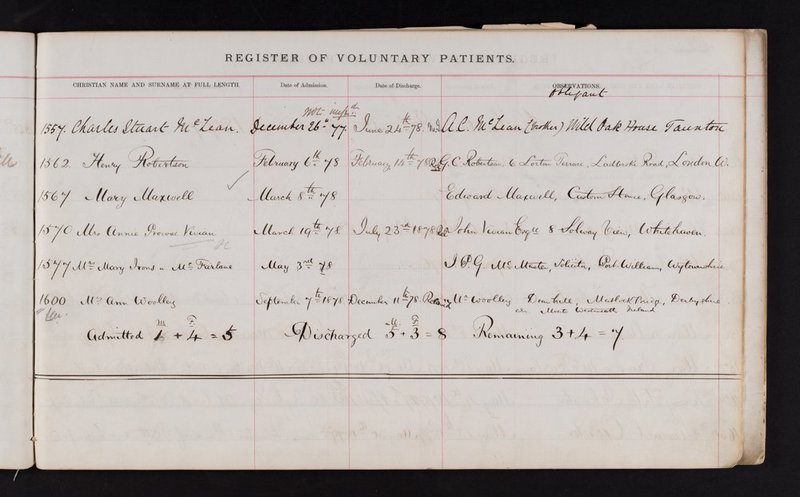 REGISTER OF VOLUNTARY PATIENTS.
CHRISTIAN NAME AND SURNAME AT FULL LENGTH. Date of Admission. Date of Discharge. OBSERVATIONS.
obligant
1557. Charles Stuart McLean. December 26th 77 June 24th 78. A.C. McLean (brother) Wild Oak House Taunton
1562. Henry Robertson February 6th 78 February 14th 78 G C Robertson, 6 Terrace, Ladbroke Road, London W.
1567 Mary Maxwell March 8th 78 Edward Maxwell, Custom House, Glasgow.
1570 Mrs Annie Vivian March 19th 78 July 23rd 1878 John Vivian Esqre 8 Solway View, Whitehaven.
1577 Mrs Mary Irons or McFarlane May 3rd 78 J.P.G. McMaster, Solicitor, Port William, Wigtownshire
1600 Mrs Ann Woolley September 7th 1878 December 11th 78. Mr Woolley Matlock Bridge, Derbyshire
Ireland
M F M F
Admitted 1 + 4 = 5 Discharged 5 + 3 = 8 Remaining 3 + 4 = 7